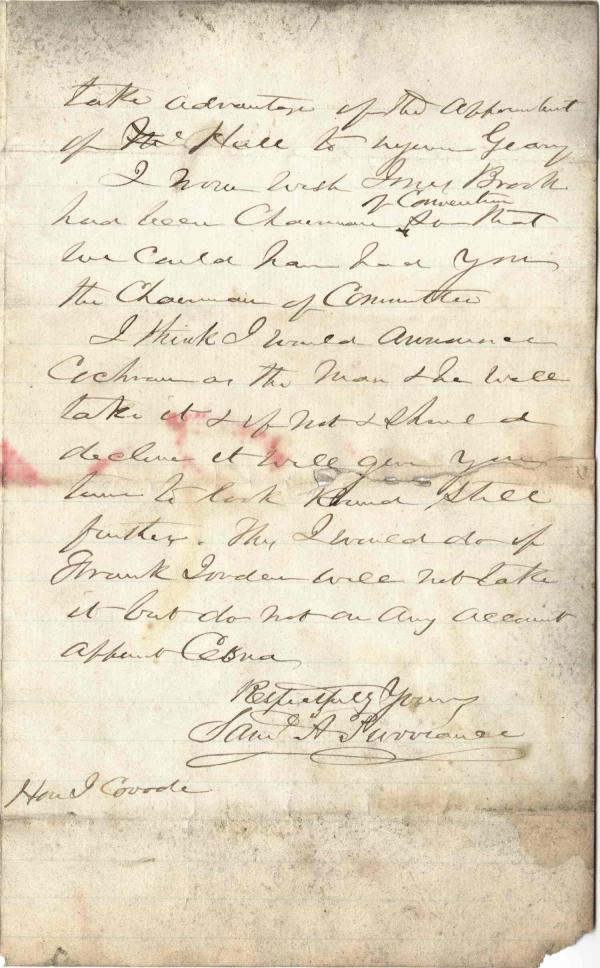 take advantage of the appointment
of Hall to injure Geary
I now wish Brook
of Convention
had been Chairman so that
we could have had you
the Chairman of Committee
I think I would announce
Cochran as the man & he will
take it & if not & should
decline it will give you
time to look Round Still
further. This I would do if
Frank Jordan will not take
it but do not on any account
appoint Cesna
Respectfully Yours
Saml A Purviance
Hon J Covode